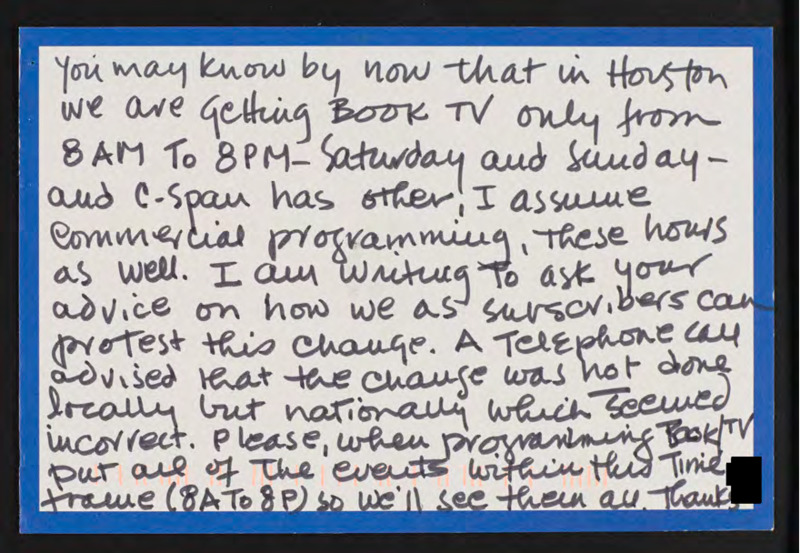 You may know by now that in Houston
we are getting BOOK TV only from
8 AM To 8PM - Saturday and Sunday -
and C-Span has other, I assume
commercial programming, these hours
as well. I am writing to ask your
advice on how we as subscribers can
protest this change. A Telephone call
advised that the change was not done
locally but nationally which seemed
incorrect. Please, when programming Book TV
put all of the events within this Time
frame (8A To 8P) so we'll see them all. Thanks